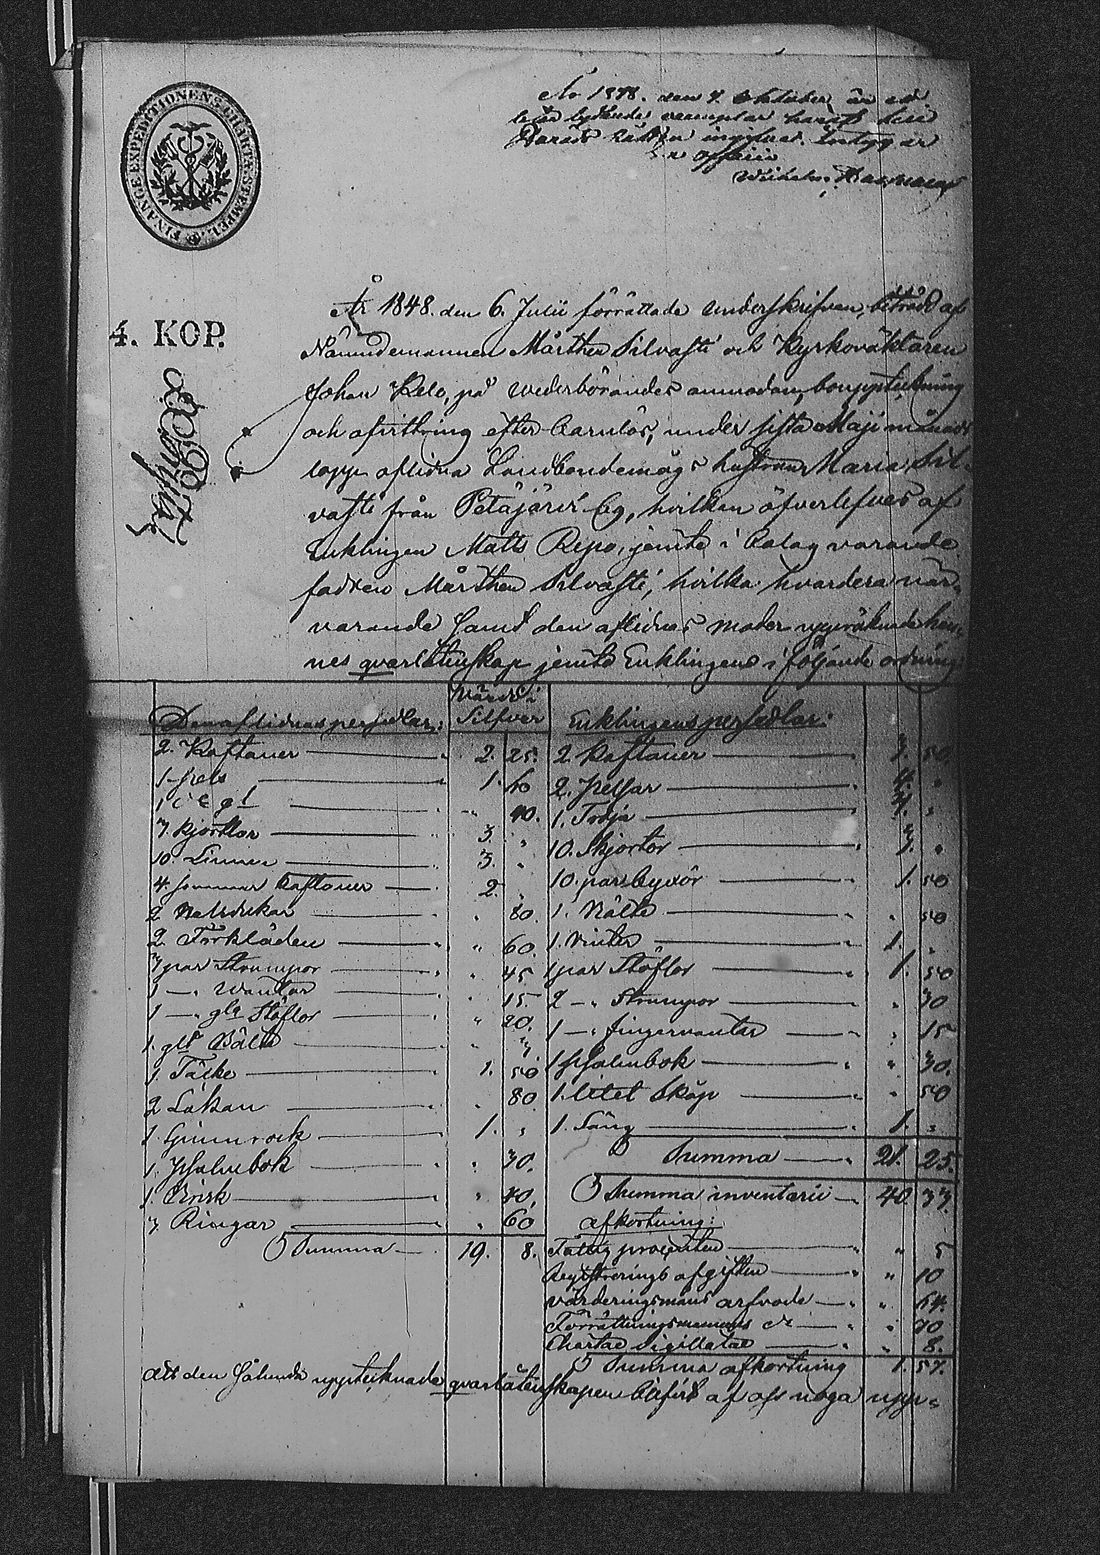 FINANCE EXPEDITIONENS CHARTÆ STEMPEL
År 1848. den 7. Oktober är ett
lika lydande exemplar häraf till
Härads Rätten ingifvet. Intygar
Ex officio
Wilhelm
4. KOP.
År 1848. den 6. Julii förrättade Underskrifven, biträdd af
Nämndemannen Mårthen Silvasti och Kyrkoväktaren
Johan Kelo, på wederbörandes anmodan, bouppteckning
och afvittring efter barnlös, under sista Maji månads
lopp aflidna Landbondemågs hustrun Maria Sil-
vasti från Petäjävesi by, hvilken öfverlefves af
Enklingen Matts Repo, jemte i bolag varande
fadren Mårthen Silvasti, hvilka hvardera när-
varande samt den aflidnas moder uppräknade hen-
nes qvarlåtenskap jemte Enklingens i följande ordning:
Den aflidnas persedlar: Värde i Silfver Enklingens persedlar:
2. Kaftaner 2. 25. 2. Kaftaner 3. 50.
1. pels 1. 40 2. Pelsar 4. "
1. " 40. 1. Tröja "
7. kjortlar 3. " 10. Skjortor 3. "
10. Linnen 3. " 10. par byxor 1. 50
4. sommar kaftaner 2. " 1. Bälte " 50
2. Halsdukar " 80. 1. 1. "
2. Förkläden " 60. 1 par Stöflor 1. 50
7 par Strumpor " 45 2 —" Strumpor " 30
1 —" Wantar " 15 1 —" fingervantar " 15
1 —" gla Stöflor " 20. 1 Psalmbok " 30.
1. glt Bälte " 3. 1. litet Skåp " 50
1. Täcke 1. 50 1. Säng 1. "
2 Lakan " 80 Summa 21. 25.
1. Spinnrock 1. " Summa inventarii 40 33.
1. Psalmbok " 30. afkortning:
1. " 40. Fattig procenten " 5
3 Ringar " 60 Registrerings afgiften " 10
Summa 19. 8. värderingsmäns arfvode " 64.
Förrättningsmannens d:o " 70
Chartæ Sigillatæ " 8.
Summa afkortning 1. 57.
Att den sålunda upptecknade qvarlåtenskapen blifvit af oss noga upp-